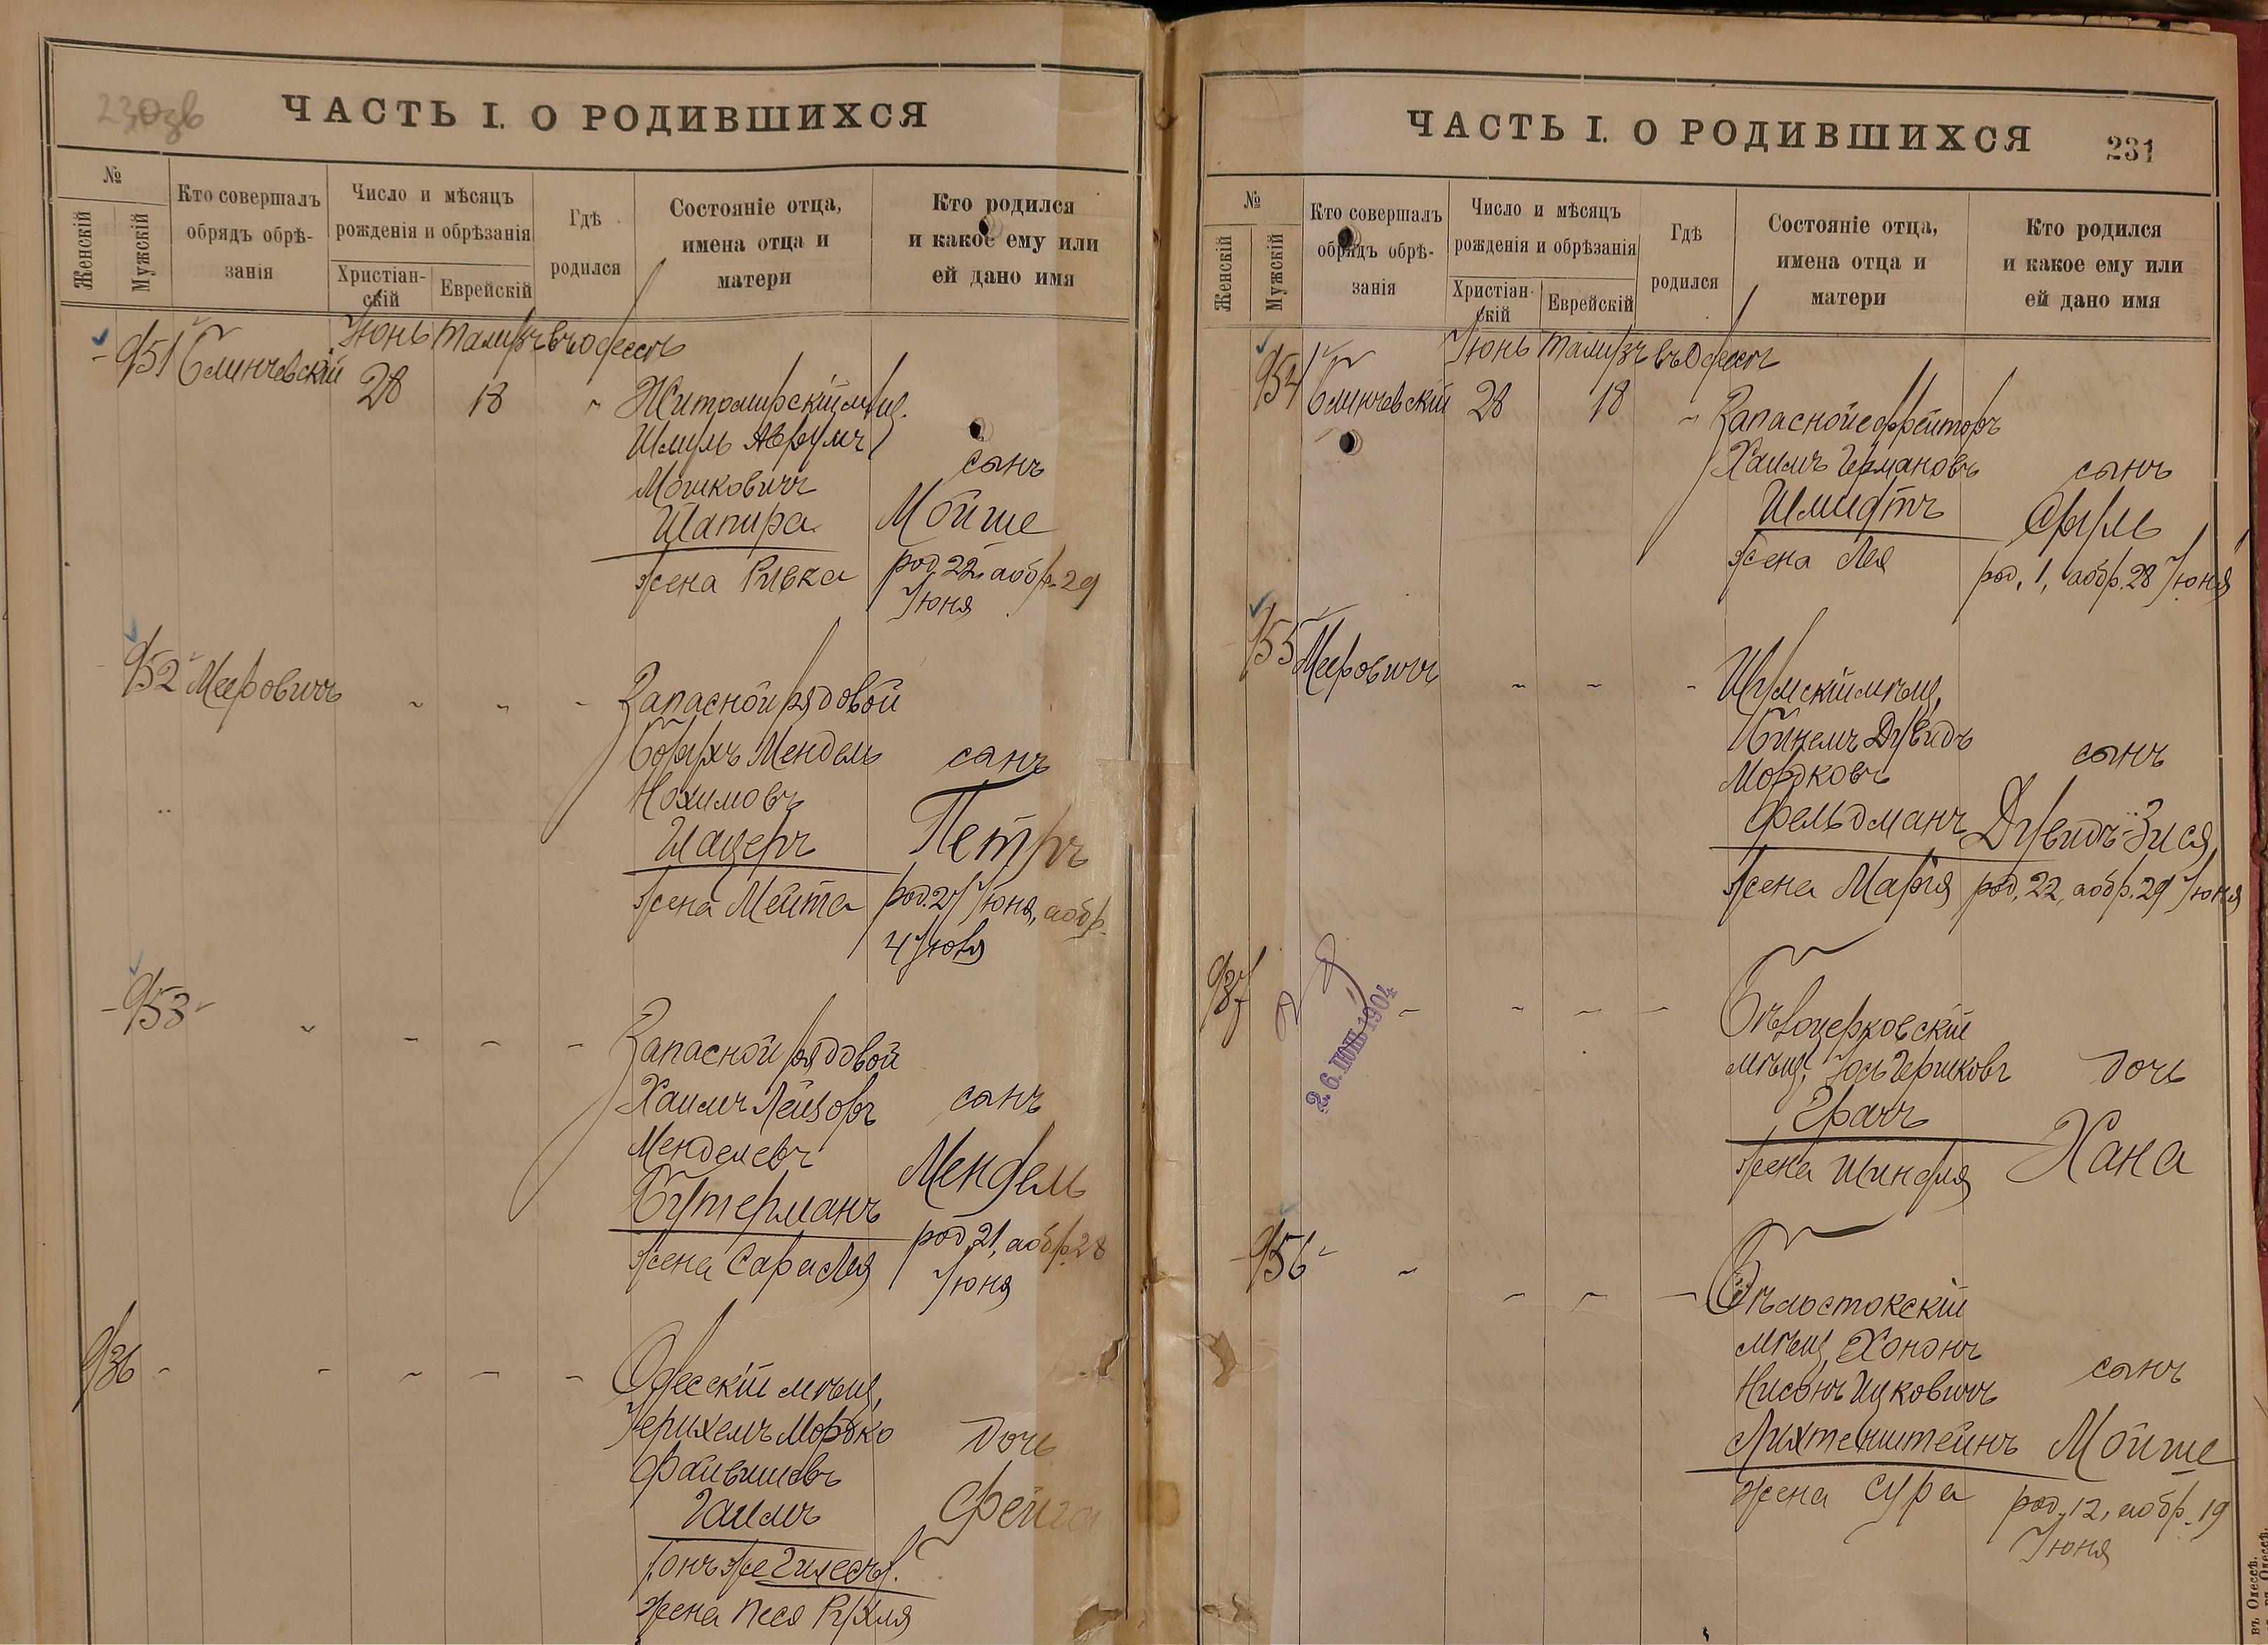 230зв
ЧАСТЬ I. О РОДИВШИХСЯ
№
Женскій
Мужскій
Кто совершалъ
обрядъ обрѣ-
занія
Число и мѣсяцъ
рожденія и обрѣзанія
Христіан-
скій
Еврейскій
Гдѣ
родился
Состояніе отца,
имена отца и
матери
Кто родился
и какое ему или
ей дано имя
Іюнь Тамузъ въ Одессѣ
951 Слинчевскій 28 18 Житомирскій мѣщ.
Шмуль Аврумъ
Мошковичъ
сынъ
Шапира
Мойше
жена Ривка
род. 22, а обр. 29
Іюня
952 Мееровичъ
Запасной рядовой
Борухъ Мендель
Нохимовъ
сынъ
Шацеръ
Петръ
жена Мейта
род. 27 Іюня, а обр.
4 Іюля
953
Запасной рядовой
Хаимъ Лейзоръ
Менделевъ
сынъ
Бутерманъ
Мендель
жена Сара Лея
род. 21, а обр. 28
Іюня
936
Одесскій мѣщ.
Іерихемъ Мордко
Файвишовъ
дочь
Гаимъ
Фейга
онъ же Гилесъ.
жена Песя Рухля
ЧАСТЬ I. О РОДИВШИХСЯ
231
№
Женскій
Мужскій
Кто совершалъ
обрядъ обрѣ-
занія
Число и мѣсяцъ
рожденія и обрѣзанія
Христіан-
скій
Еврейскій
Гдѣ
родился
Состояніе отца,
имена отца и
матери
Кто родился
и какое ему или
ей дано имя
Іюнь Тамузъ въ Одессѣ
954 Слинчевскій 28 18 Запасной ефрейторъ
Хаимъ Германовъ
сынъ
Шмидтъ
Срулъ
жена Лея
род. 1, а обр. 28 Іюня
955 Мееровичъ
Шумскій мѣщ.
Дувидъ
Мордковъ
сынъ
Фельдманъ
Дувидъ-Зися
жена Марія
род. 22, а обр. 29 Іюня
937
26. 1904
Бѣлоцерковскій
мѣщ. Іось Гершковъ
дочь
Грачъ
Хана
жена Шиндля
956
Бѣлостокскій
мѣщ. Хононъ
Нисонъ Ицковичъ
сынъ
Лихтенштейнъ
Мойше
жена Сура
род. 12, а обр. 19
Іюня